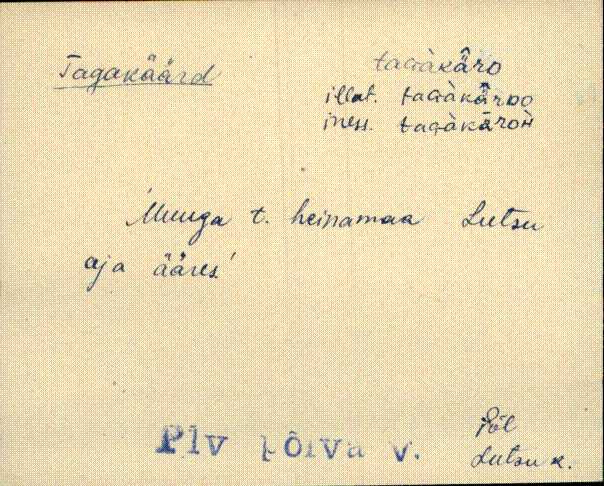 Tagakäärd
taGàkäro
illat. taGàkäroo
iness. taGàkäroh
Muuga t. heinamaa Lutsu
aja ääres!
Plv Põlva v.
Põl
Lutsu k.